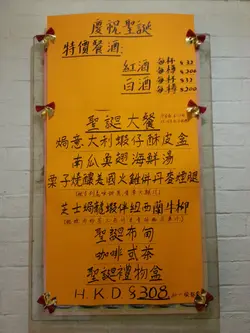 慶祝聖誕
特價餐酒:
紅酒 每杯 $33
每樽 $200
白酒 每杯 $33
每樽 $200
聖誕大餐
焗意大利蝦仔酥皮盒
南瓜魚翅海鮮湯
栗子燒釀美國火雞伴丹麥燈腿
芝士焗龍蝦伴紐西蘭牛柳
聖誕布甸
咖啡或茶
聖誕禮物盒
H.K.D $308